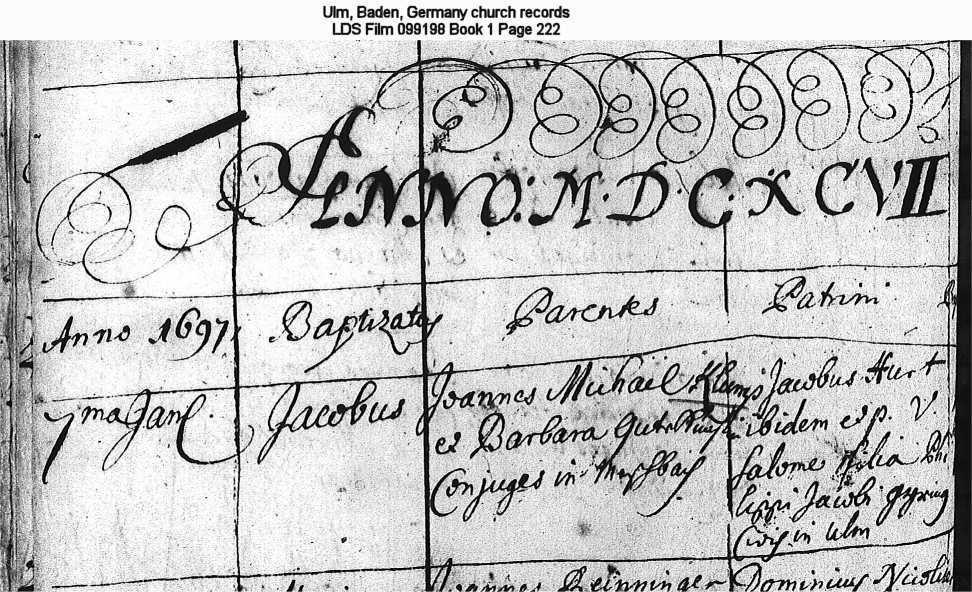 Ulm, Baden, Germany church records
LDS Film 099198 Book 1 Page 222
ANNO: M. D. C. XCVII
Anno 1697, Baptizatus Parentes Patrini
7ma Jan Jacobus Joannes Michael Jacobus Hurt
et Barbara ibidem et p. V.
Conjuges in Salome filia Phi
lippi Jacobi
Civis in Ulm
Joannes Beinninger Dominicus Nicolius